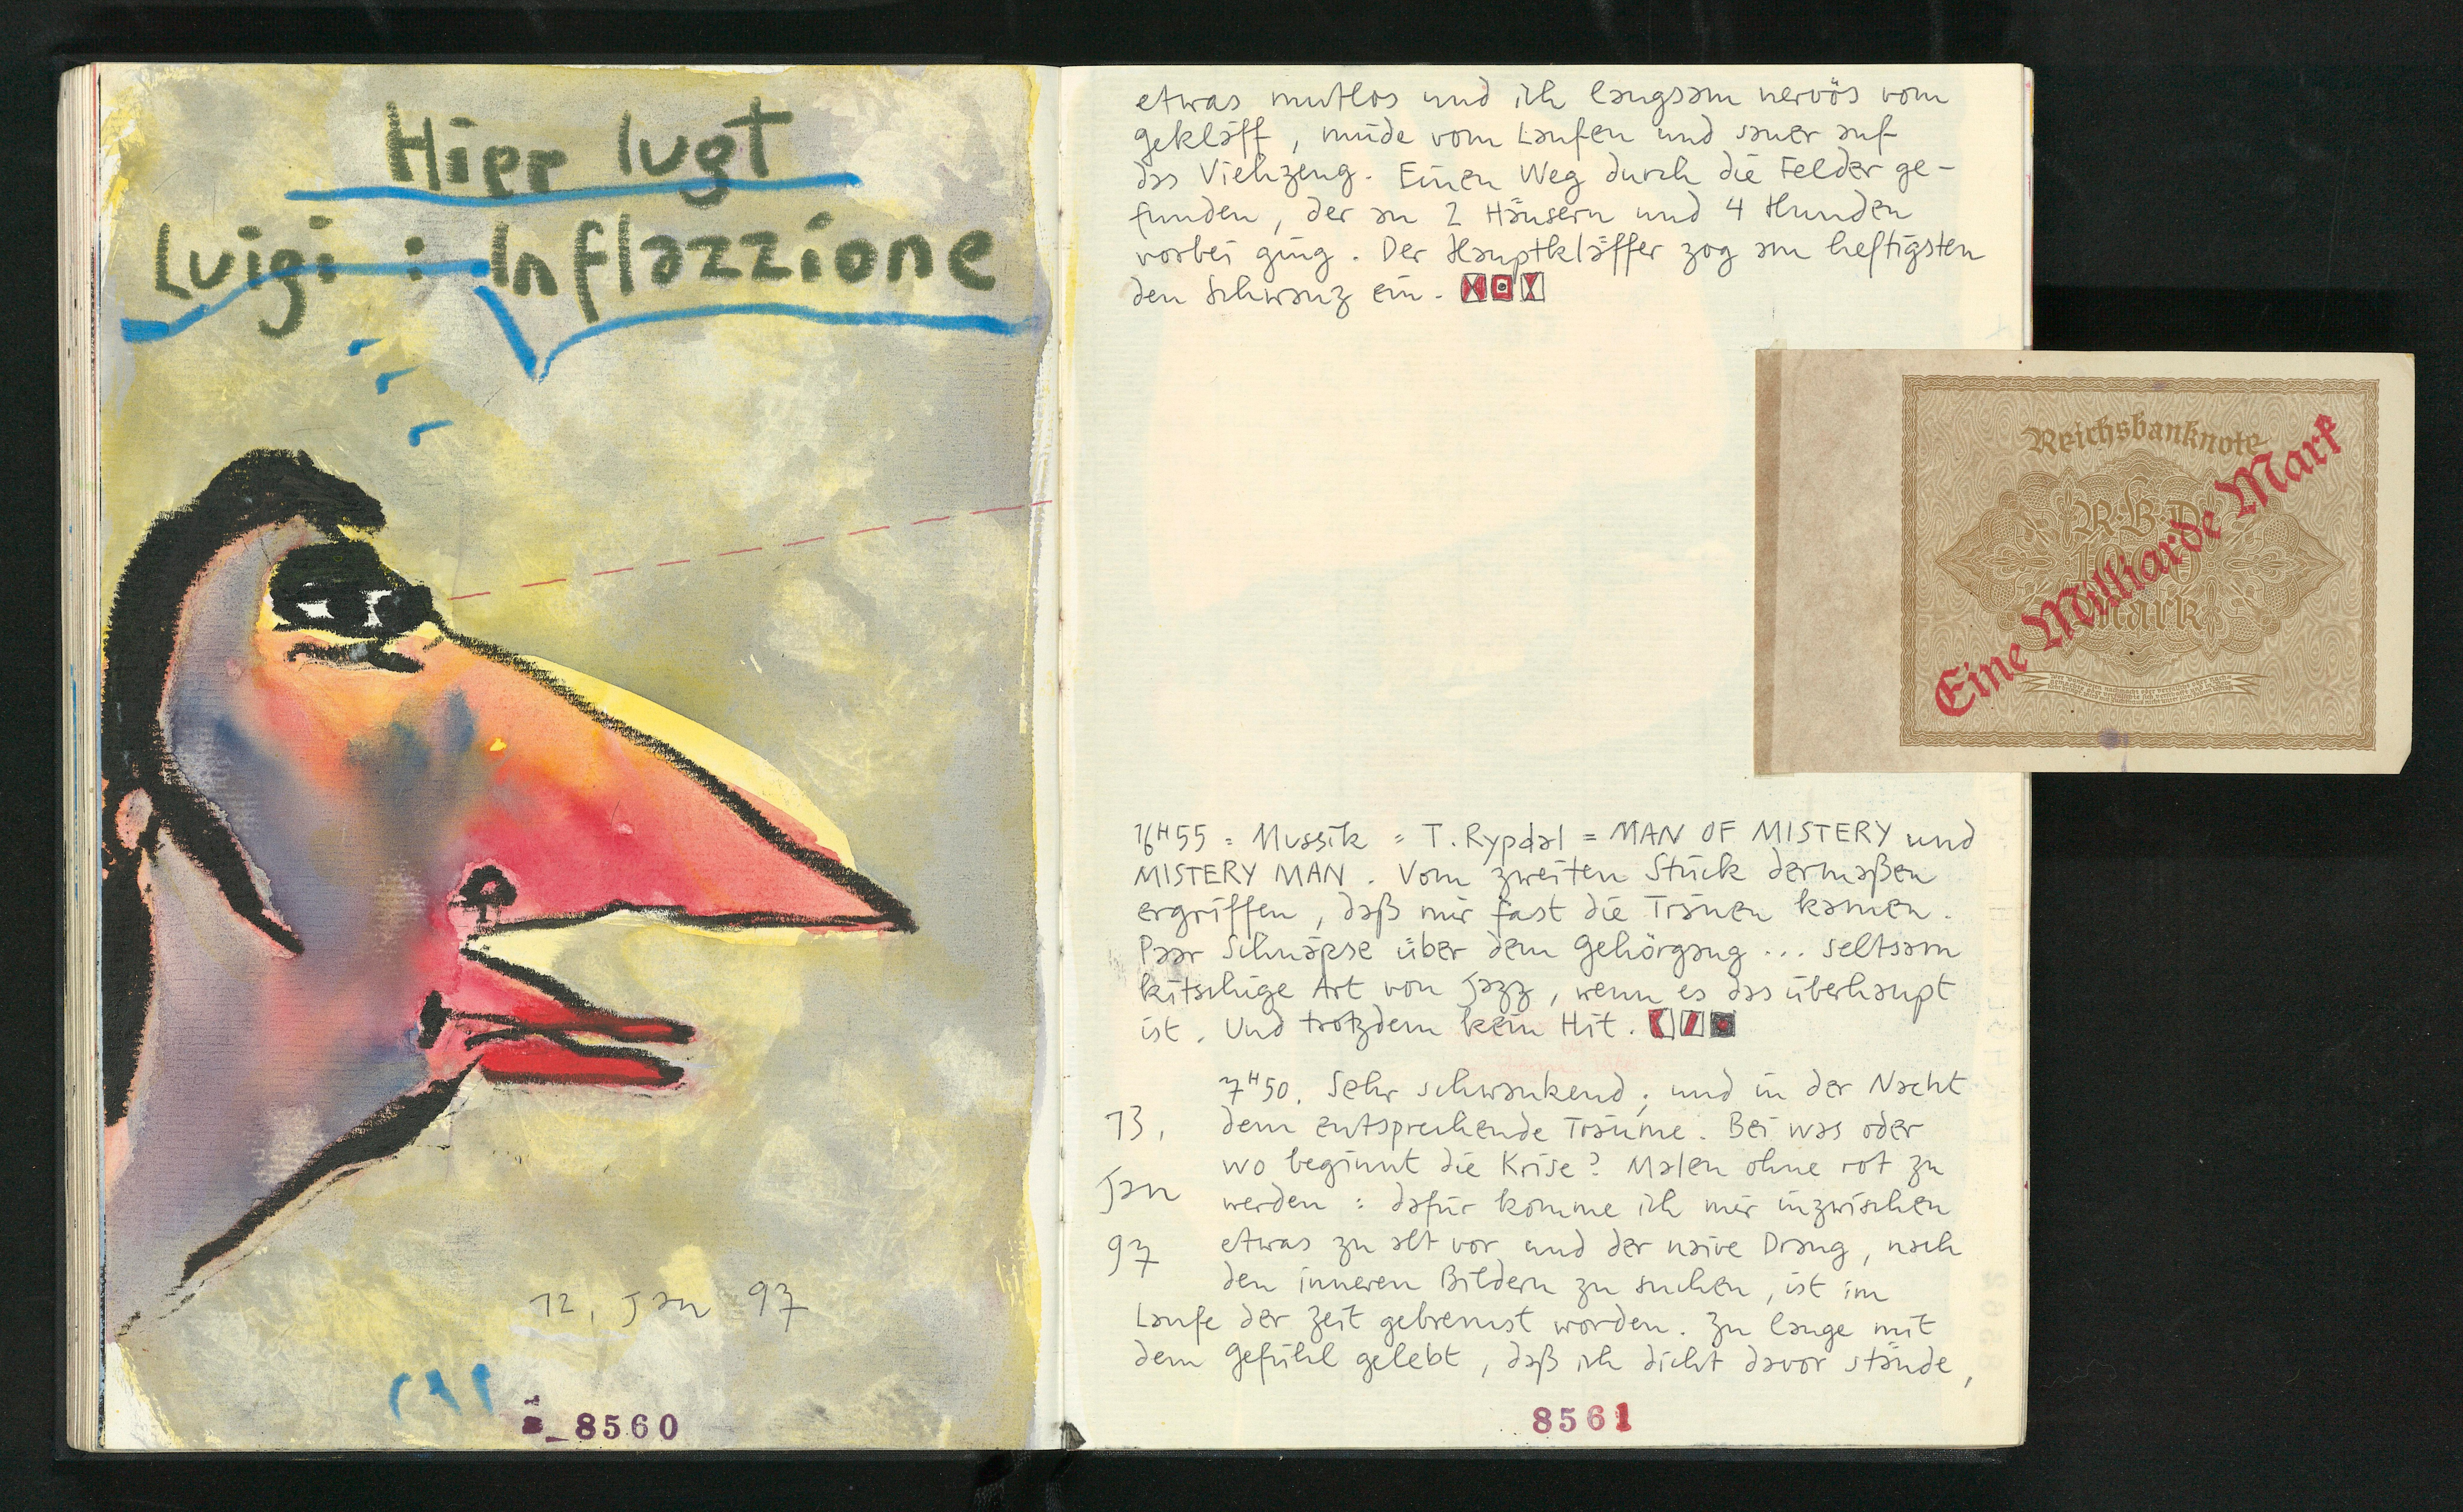 Hier lugt
Luigi : Inflazzione
12. Jan 97
8560
etwas mutlos und ich langsam nervös vom
gekläff, müde vom Laufen und sauer auf
das Viehzeug. Einen Weg durch die Felder ge-
funden, der an 2 Häusern und 4 Hunden
vorbei ging. Der Hauptkläffer zog am heftigsten
den Schwanz ein.
Reichsbanknote
R.B.D.
1000
Mark
Eine Milliarde Mark
16H55 = Mussik = T. Rypdal = MAN OF MISTERY und
MISTERY MAN. Vom zweiten Stück dermaßen
ergriffen, daß mir fast die Tränen kamen.
Paar Schnäpse über dem Gehörgang ... seltsam
kitschige Art von Jazz, wenn es das überhaupt
ist. Und trotzdem kein Hit.
13.
Jan
97
7H50. Sehr schwankend; und in der Nacht
dem entsprechende Träume. Bei was oder
wo beginnt die Krise? Malen ohne rot zu
werden : dafür komme ich mir inzwischen
etwas zu alt vor und der naive Drang, nach
den inneren Bildern zu suchen, ist im
Laufe der Zeit gebremst worden. Zu lange mit
dem Gefühl gelebt, daß ich dicht davor stände,
8561